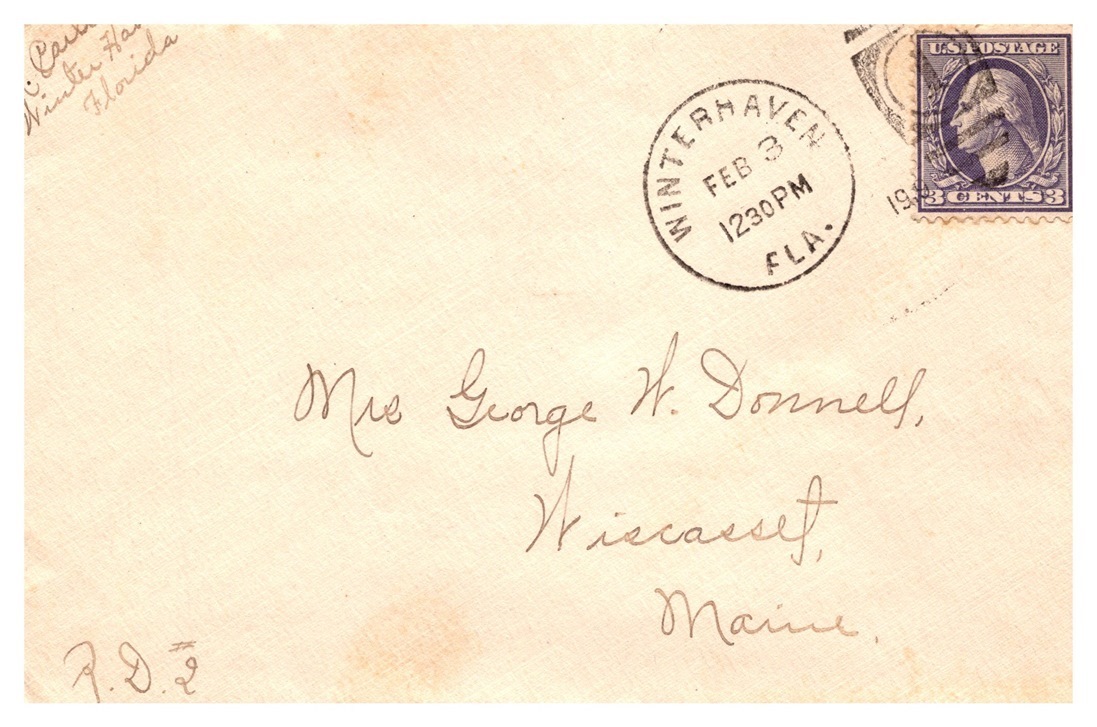 Winter
Florida
WINTERHAVEN
FEB 3
12 30 PM
FLA.
U.S. POSTAGE
3 CENTS 3
Mrs George W. Donnell,
Wiscasset,
Maine.
R.D. #2